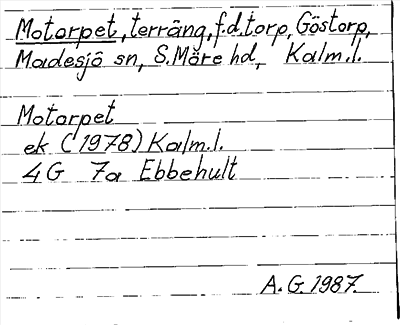 Motorpet, terräng, f.d. torp, Göstorp,
Madesjö sn, S. Möre hd, Kalm. l.
Motorpet
ek (1978) Kalm. l.
4G 7a Ebbehult
A. G. 1987.